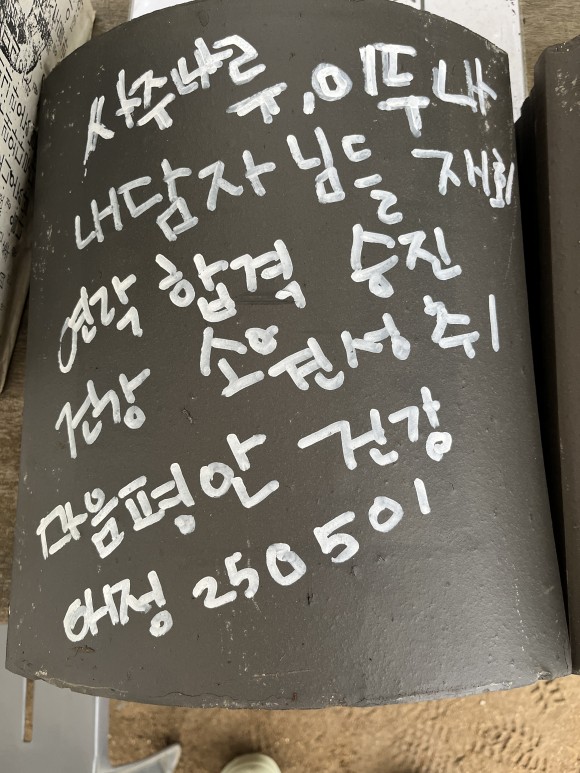 사주나루,이뚜내
내담자님들 재회
연락 합격 승진
건강 소원성취
마음평안 건강
애정 250501